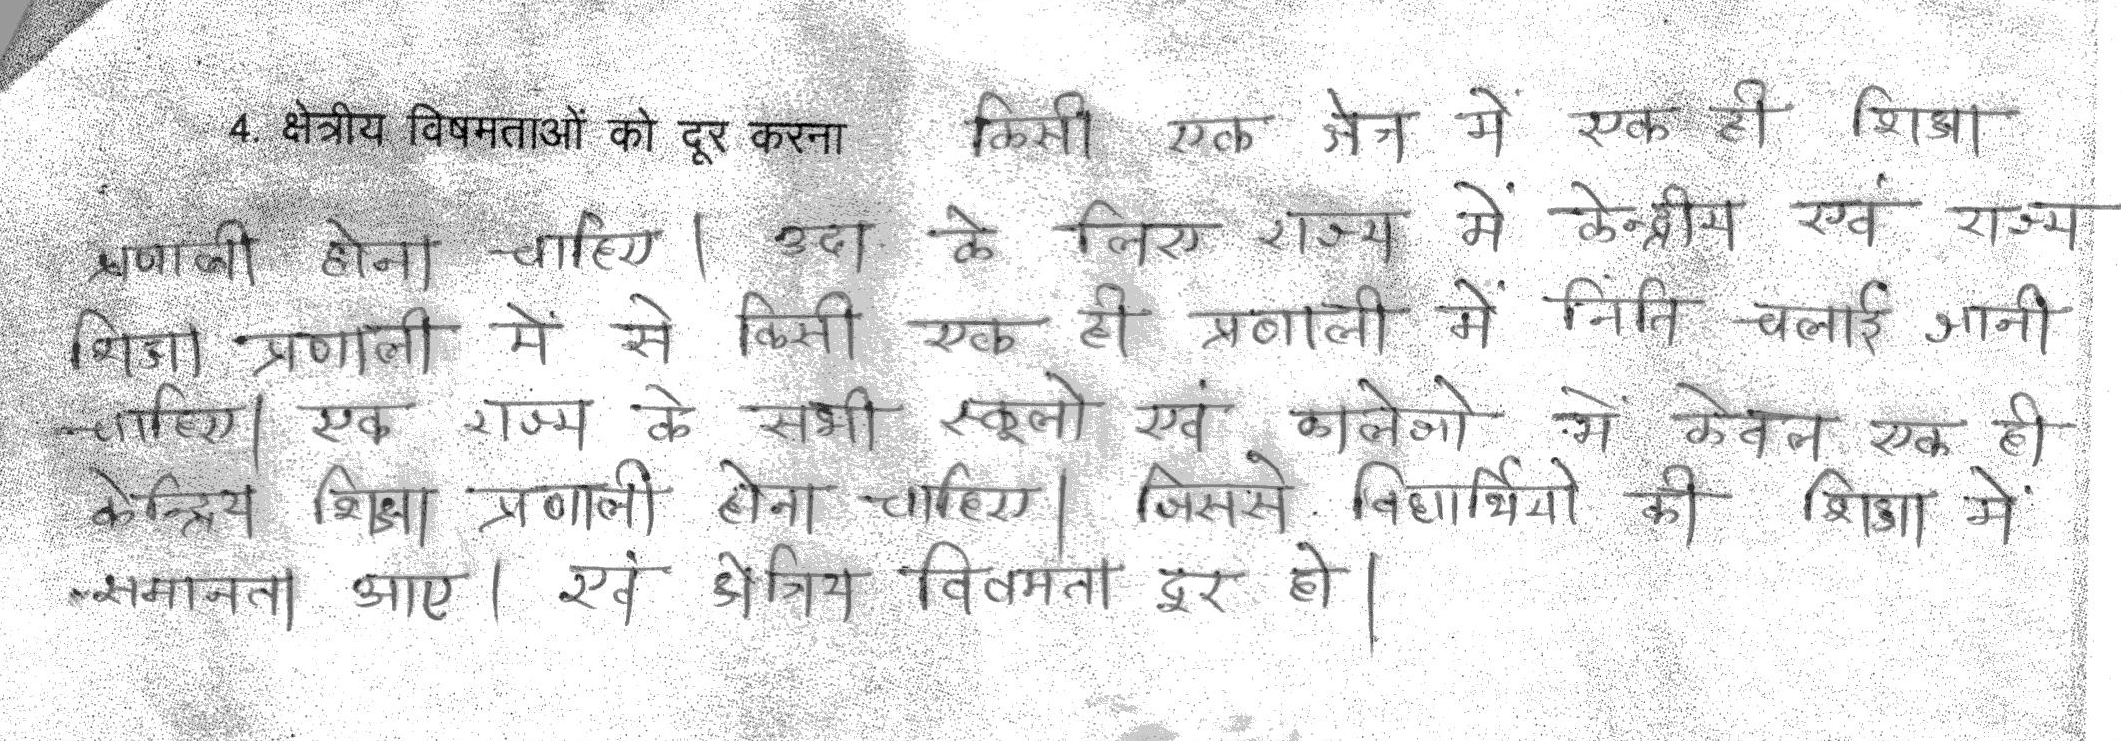 4. क्षेत्रीय विषमताओं को दूर करना किसी एक क्षेत्र में एक ही शिक्षा
प्रणाली होना चाहिए। उदा. के लिए राज्य में केन्द्रीय एवं राज्य
शिक्षा प्रणाली में से किसी एक ही प्रणाली में निति चलाई जानी
चाहिए। एक राज्य के सभी स्कूलो एवं कालेजो में केवल एक ही
केन्द्रिय शिक्षा प्रणाली होना चाहिए। जिससे विद्यार्थियो की शिक्षा में
समानता आए। एवं क्षेत्रिय विवमता दूर हो।